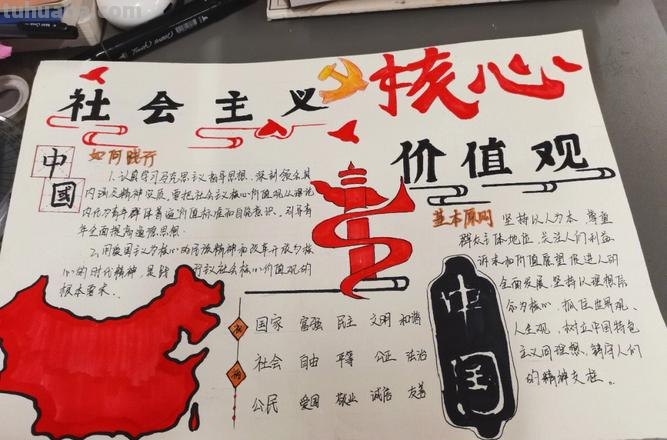 tuhuaba.com
社会主义核心
价值观
中國
如何践行
1、认真学习马克思主义指导思想，深刻领会其
内涵及精神实质，要把社会主义核心价值观从理论
内化为青年群体普遍价值标准和自觉意识，引导青
年全面提高道德思想。
2、用爱国主义为核心的民族精神和改革开放为核
心的时代精神，是践行社会核心价值观的
根本要求。
基本原则
坚持以人为本，尊重
群众主体地位，关注人们利益
诉求和价值愿望，促进人的
全面发展，坚持以理想信
念为核心，抓住世界观、
人生观，树立中国特色
主义的理想，铸牢人们
的精神支柱。
国家 富强 民主 文明 和谐
社会 自由 平等 公正 法治
公民 爱国 敬业 诚信 友善
中国